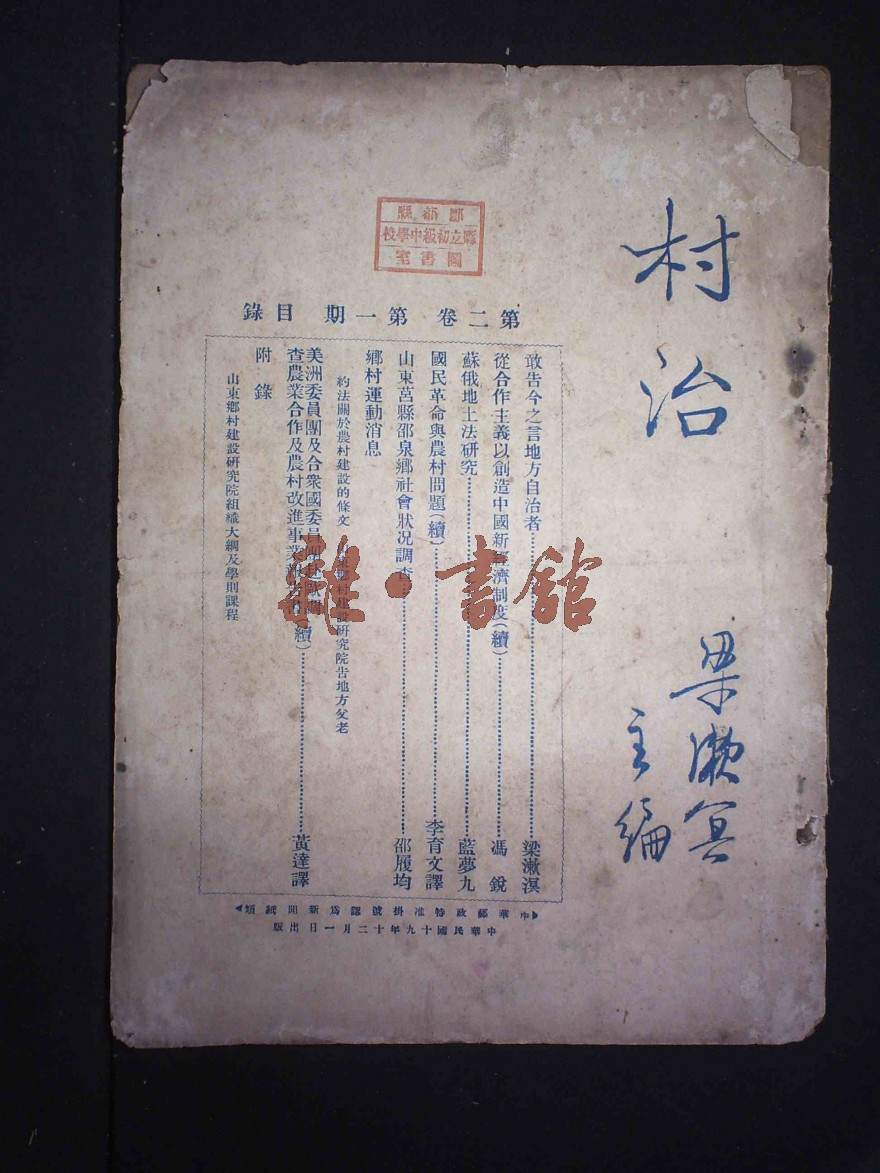 村治
梁漱冥
主編
縣都鄷
校學中級初立縣
室書圖
第二卷 第一期 目錄
敢告今之言地方自治者 梁漱溟
從合作主義以創造中國新經濟制度(續) 馮銳
蘇俄地土法研究 藍夢九
國民革命與農村問題(續) 李育文譯
山東莒縣邵泉鄉社會狀况調查 邵履均
鄉村運動消息
約法關於農村建設的條文 山東鄉村建設研究院告地方父老
美洲委員團及合衆國委員團赴歐調
查農業合作及農村改進事業報告書(續) 黃達譯
附錄
山東鄉村建設研究院組織大綱及學則課程
中華郵政特准掛號認爲新聞紙類
中華民國十九年十二月一日出版
雜·書館